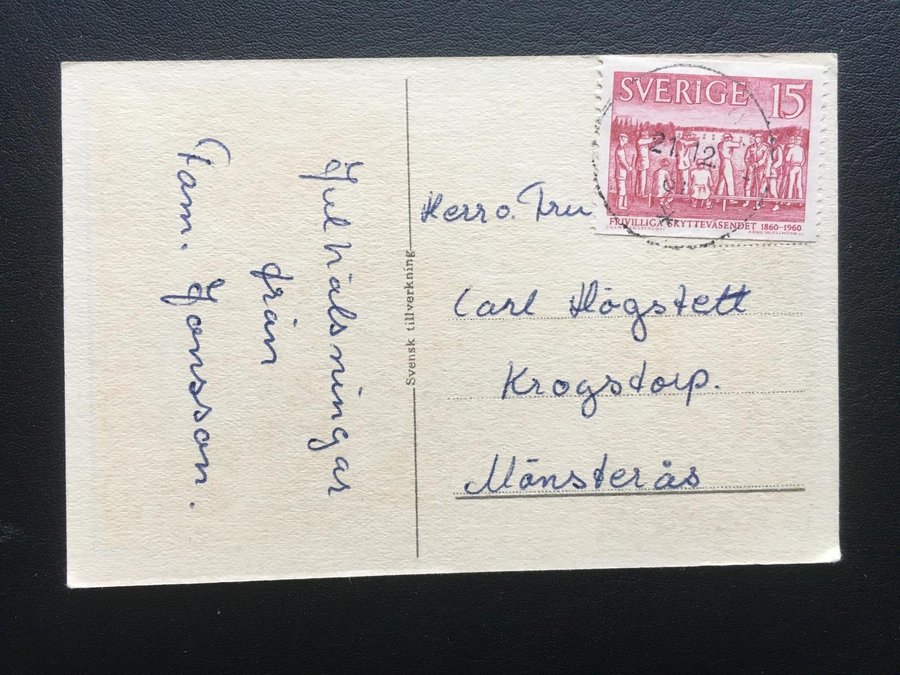 Julhälsningar
från
Fam. Jonsson.
Svensk tillverkning
SVERIGE 15
FRIVILLIGA SKYTTEVÄSENDET 1860-1960
21.12
Herr o. Fru
Carl Högstett
Krogstorp.
Mönsterås